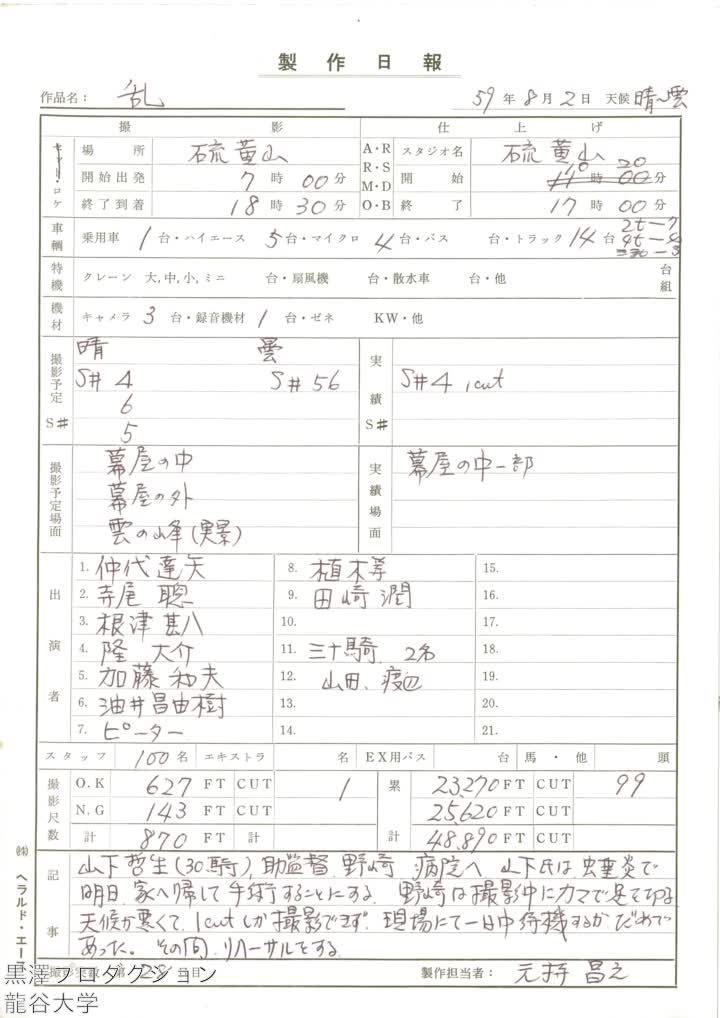 製作日報
作品名： 乱 59年8月2日 天候 晴〜雲
撮影 仕上げ
セット・ロケ 場所 硫黄山 A・R スタジオ名 硫黄山
開始出発 7時00分 R・S M・D 開始 10 20 時00分
終了到着 18時30分 O・B 終了 17時00分
車輌 乗用車 1台・ハイエース 5台・マイクロ 4台・バス 台・トラック 14台 2t—7 4t—4
特機 クレーン 大,中,小,ミニ 台・扇風機 台・散水車 台・他 台組
機材 キャメラ 3台・録音機材 1台・ゼネ KW・他
撮影予定S# 晴 曇 実績S#
S#4 S#56 S#4 1cut
6
5
撮影予定場面 幕屋の中 実績場面 幕屋の中一部
幕屋の外
雲の峰(実景)
出演者 1. 仲代達矢 8. 植木等 15.
2. 寺尾聰 9. 田崎潤 16.
3. 根津甚八 10. 17.
4. 隆大介 11. 三十騎 2名 18.
5. 加藤和夫 12. 山田、渡辺 19.
6. 油井昌由樹 13. 20.
7. ピーター 14. 21.
スタッフ 100名 エキストラ 名 EX用バス 台 馬・他 頭
撮影尺数 O.K 627 FT CUT 1 累計 23,270 FT CUT 99
N.G 143 FT CUT 25,620 FT CUT
計 870 FT 計 48,890 FT CUT
記事 山下哲生(30騎)、助監督 野崎 病院へ 山下氏は虫垂炎で
明日、家へ帰して手術することにする。野崎は撮影中にカマで足を切る
天候が悪くて、1cutしか撮影できず。現場にて一日中待機するが、だめで
あった。その間、リハーサルをする。
撮影実数 第28日目 製作担当者： 元持昌之
㈱ヘラルド・エース
黒澤プロダクション
龍谷大学